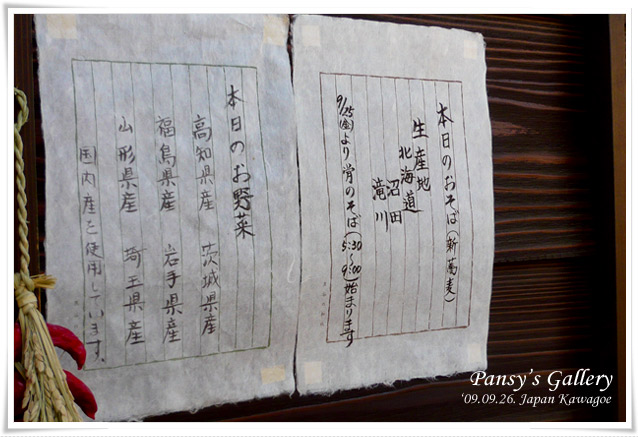 本日のおそば(新蕎麦)
生産地
北海道
沼田
滝川
9/25(金)より宵のそば(5:30~9:00)始まります
本日のお野菜
高知県産 茨城県産
福島県産 岩手県産
山形県産 埼玉県産
国内産を使用しています。
Pansy's Gallery
'09.09.26. Japan Kawagoe